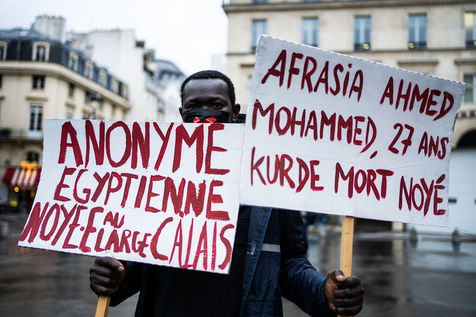 ANONYME
ÉGYPTIENNE
NOYÉE AU LARGE CALAIS
AFRASIA AHMED
MOHMMED, 27 ANS
KURDE MORT NOYÉ